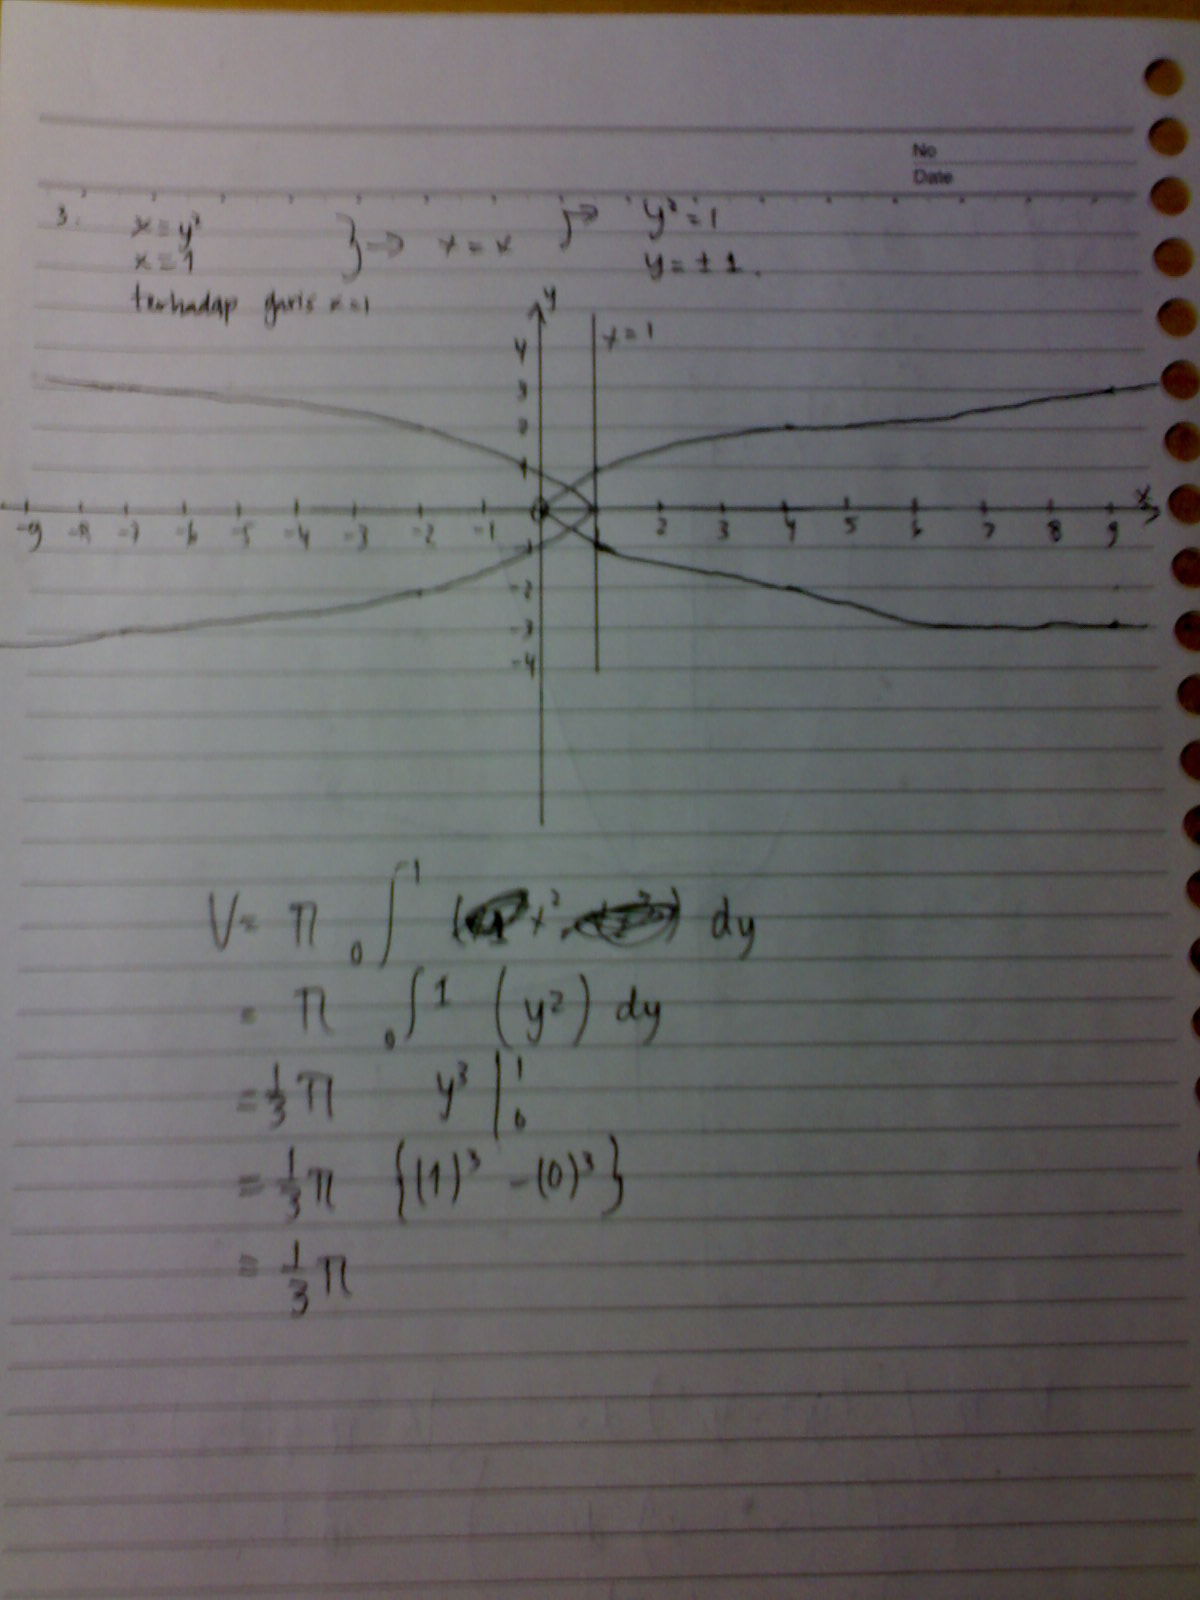 No
Date
3. x = y² } → x = x } → y² = 1
x = 1 y = ± 1.
terhadap garis x=1
y
x = 1
4
3
2
1
x
-9 -8 -7 -6 -5 -4 -3 -2 -1 0 2 3 4 5 6 7 8 9
-1
-2
-3
-4
V = π ₀∫¹ ( x² ) dy
= π ₀∫¹ (y²) dy
= 1/3 π y³ |₀¹
= 1/3 π {(1)³ - (0)³}
= 1/3 π